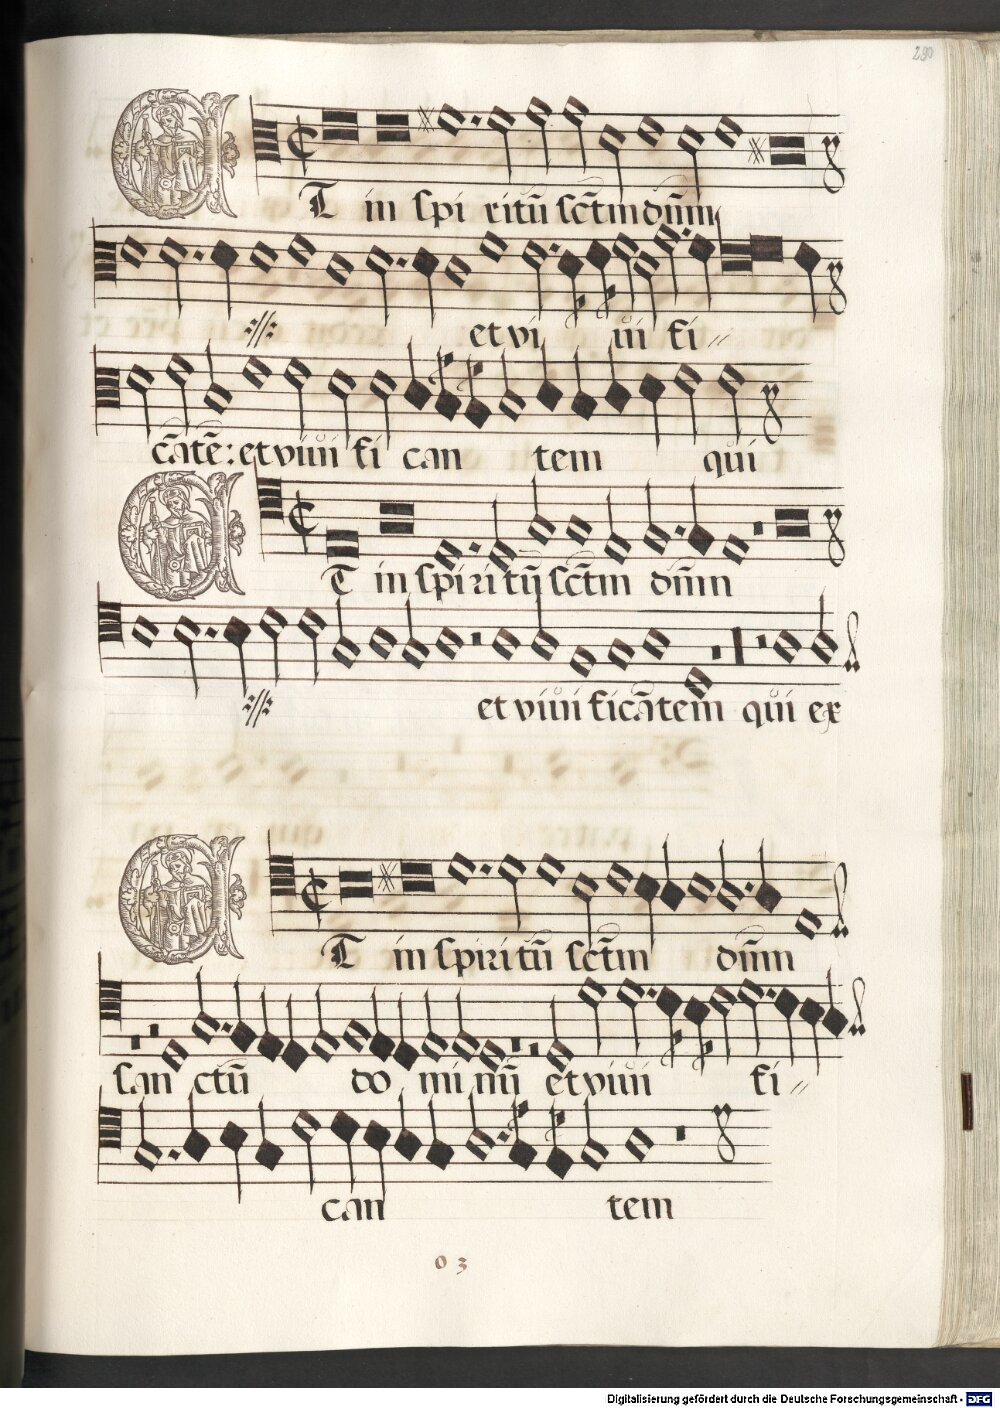 290
ET in spi ritū sctm dnm
et vi ui fi
cātē: et viui fi can tem qui
ET in spiri tū sctm dnm
et viui ficātem qui ex
ET in spiri tū sctm dnm
san ctū do mi nū et viui fi
can tem
o 3
Digitalisierung gefördert durch die Deutsche Forschungsgemeinschaft - DFG